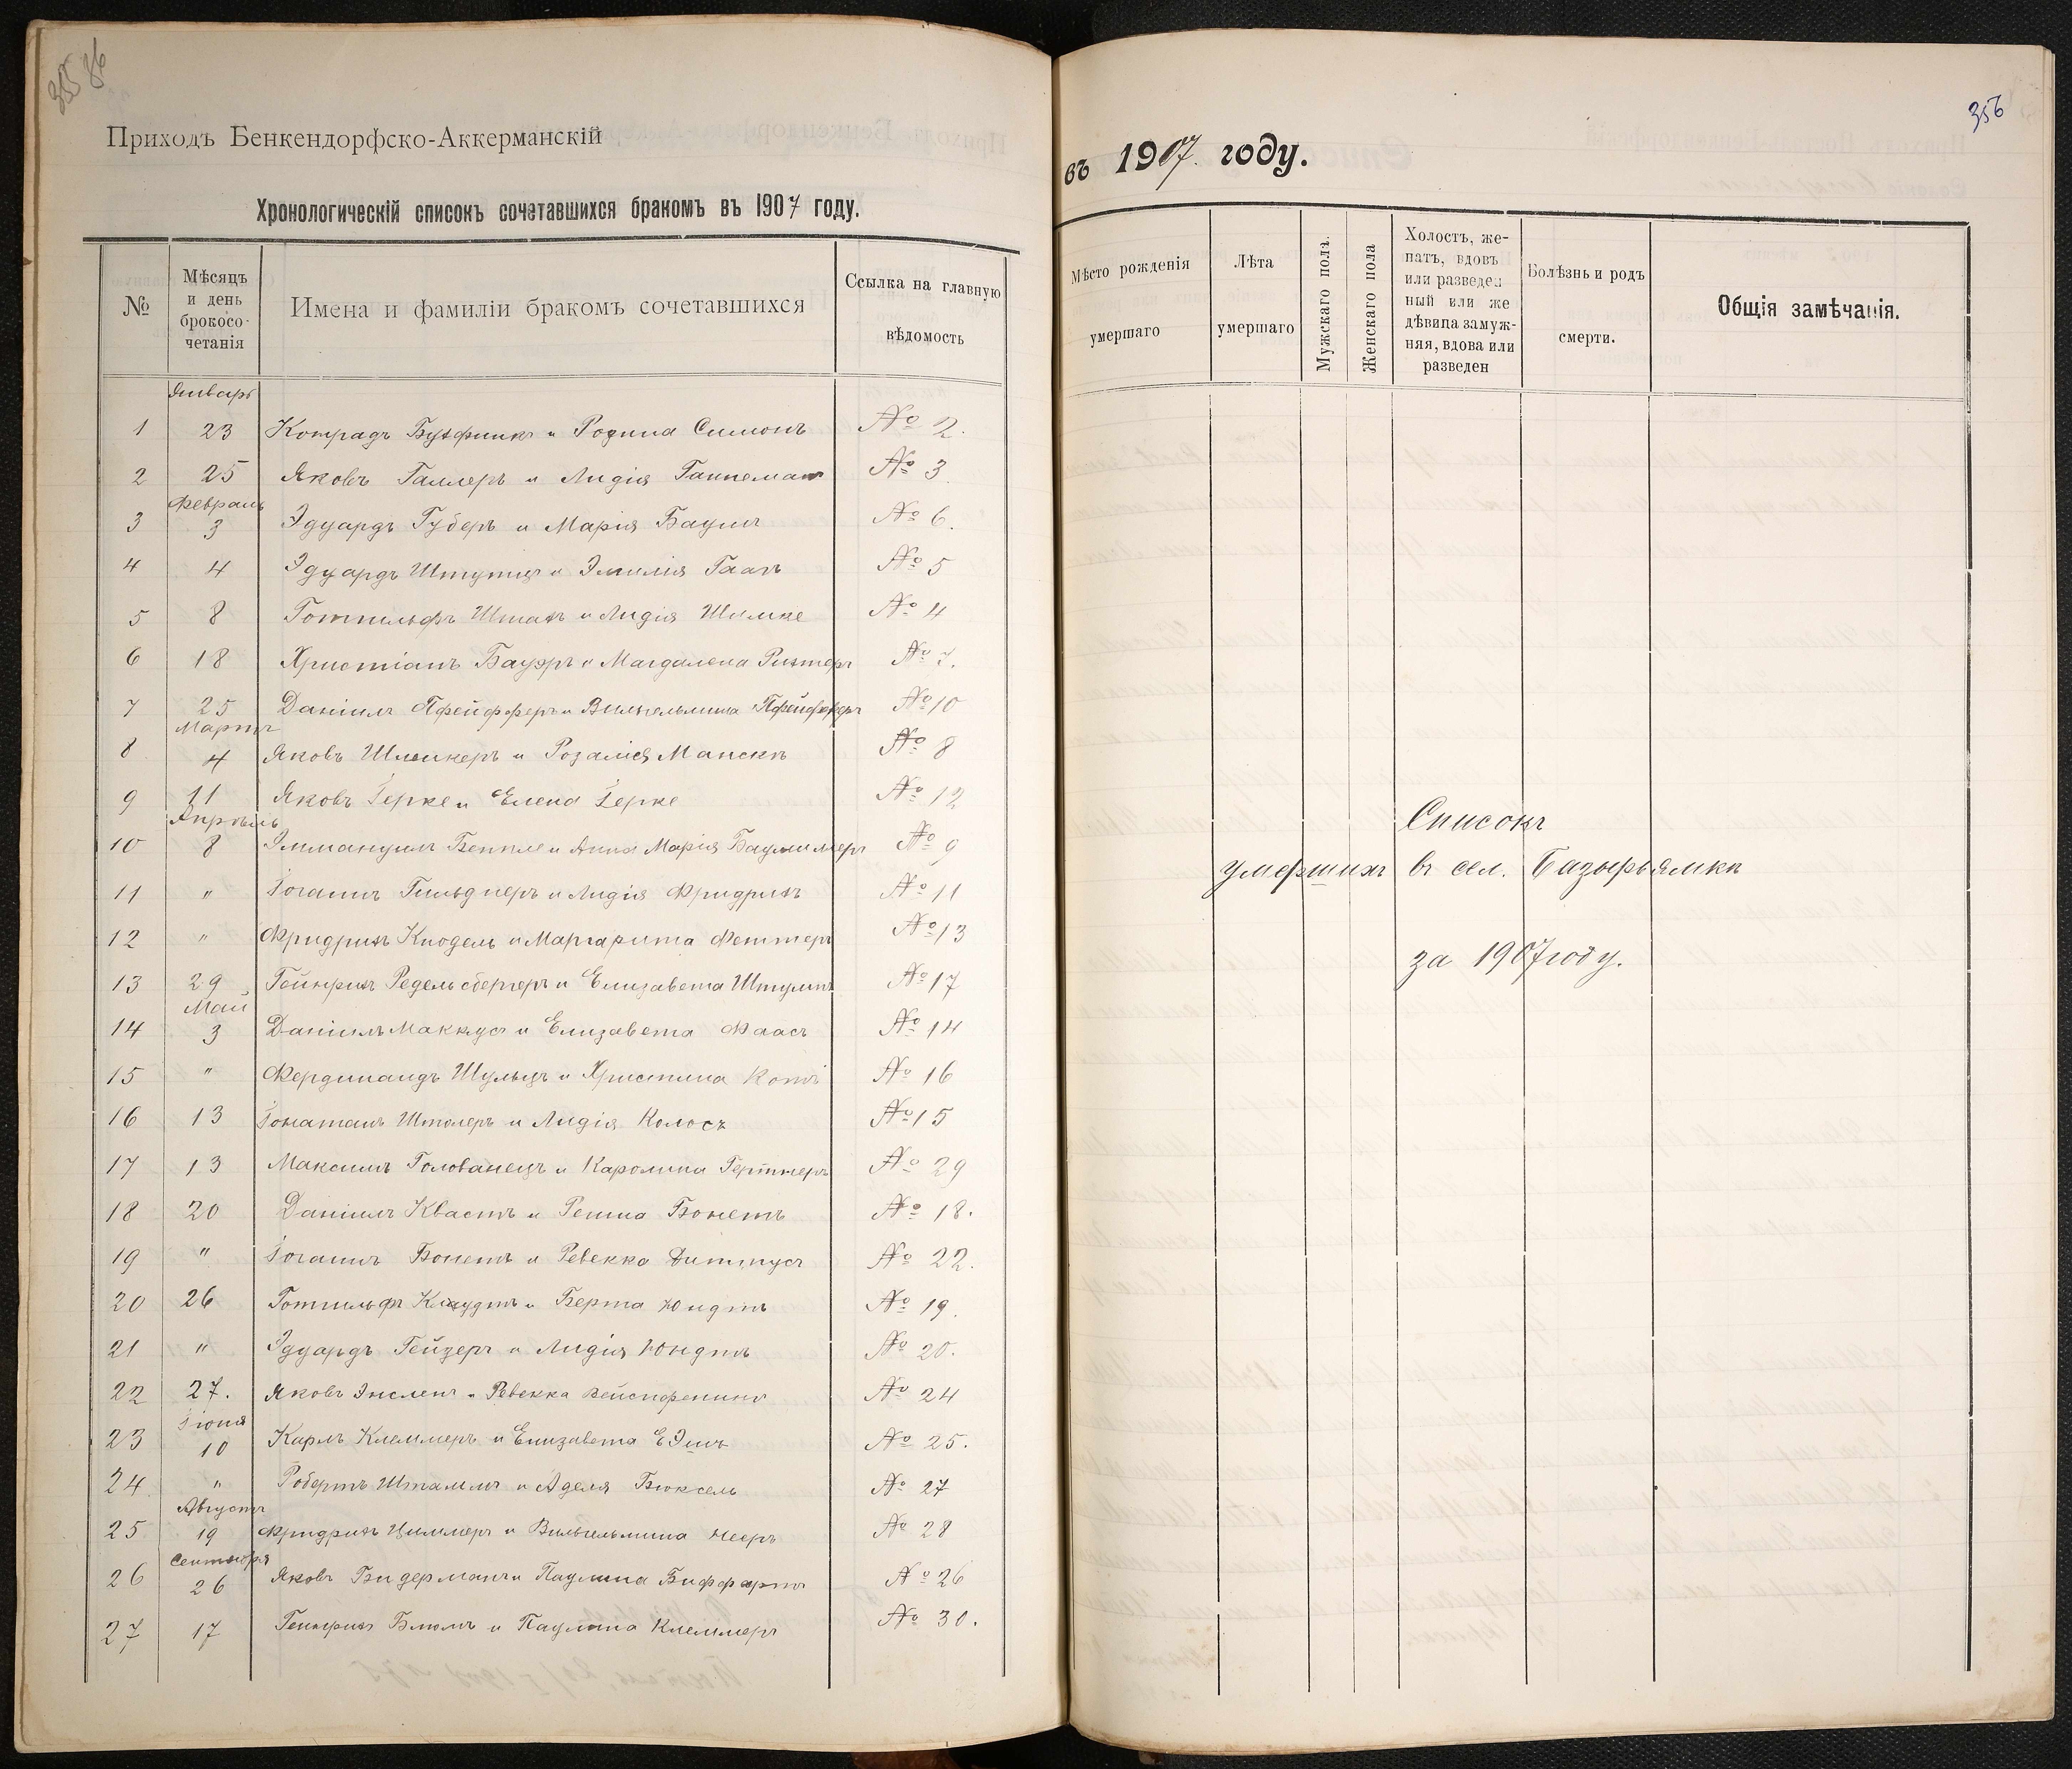 355 86
Приходъ Бенкендорфско-Аккерманскій
Хронологическій списокъ сочетавшихся бракомъ въ 1907 году.
№ Мѣсяцъ и день брокосо-четанія Имена и фамиліи бракомъ сочетавшихся Ссылка на главную вѣдомость
Январь
1 23 Конрадъ и Розина Симонъ № 2.
2 25 Яковъ Галлеръ и Лидія Ганнеманъ № 3
Февраль
3 3 Эдуардъ Губеръ и Марія Баумъ № 6.
4 4 Эдуардъ Штуппъ и Эмилія Гаагъ № 5
5 8 Готтильфъ и Лидія № 4
6 18 Христіанъ Бауэръ и Магдалена Рихтеръ № 7.
7 25 Даніилъ Пфейфферъ и Вильгельмина Пфейфферъ № 10
Мартъ
8 4 Яковъ Шлихеръ и Розалія Манске № 8
9 11 Яковъ Герке и Елена Герке № 12
Апрѣль
10 8 Эммануилъ Беппле и Анна Марія Баумиллеръ № 9
11 " Іоганнъ Гильднеръ и Лидія Фридрихъ № 11
12 " Фридрихъ Кнодель и Маргарита Феттеръ № 13
13 29 Гейнрихъ Редельсбергеръ и Елизавета Штумпъ № 17
Май
14 3 Даніилъ Маккусъ и Елизавета Фаасъ № 14
15 " Фердинандъ Шульцъ и Христина № 16
16 13 Іонатанъ Штолеръ и Лидія Колосъ № 15
17 13 Максимъ Голованецъ и Каролина Гертнеръ № 29
18 20 Даніилъ Квастъ и Регина Бонетъ № 18.
19 " Іоганнъ Бонетъ и Ревекка Диттусъ № 22.
20 26 Готтильфъ Клаудтъ и Берта Юндтъ № 19.
21 " Эдуардъ Гейзеръ и Лидія Юндтъ № 20.
22 27. Яковъ Энсленъ и Ревекка № 24
Іюня
23 10 Карлъ Клеммеръ и Елизавета № 25.
24 " Робертъ Штаммъ и Аделя Бюксель № 27
Августъ
25 19 Фридрихъ Циммеръ и Вильгельмина Нееръ № 28
Сентября
26 26 Яковъ Бидерманъ и Паулина Биффартъ № 26
27 17 Гейнрихъ Блюмъ и Паулина Клеммеръ № 30.
356
въ 1907. году.
Мѣсто рожденія умершаго Лѣта умершаго Мужскаго пола. Женскаго пола Холостъ, же-натъ, вдовъ или разведен ный или же дѣвица замуж-няя, вдова или разведен Болѣзнь и родъ смерти. Общія замѣчанія.
Списокъ
умершихъ въ сел. Базырьямкѣ
за 1907 году.